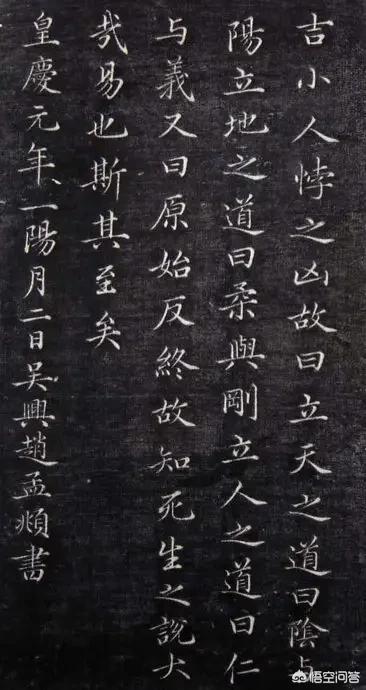 吉小人悖之凶故曰立天之道曰陰与
陽立地之道曰柔與剛立人之道曰仁
与義又曰原始反終故知死生之說大
哉易也斯其至矣
皇慶元年一陽月二日吳興趙孟頫書
悟空问答